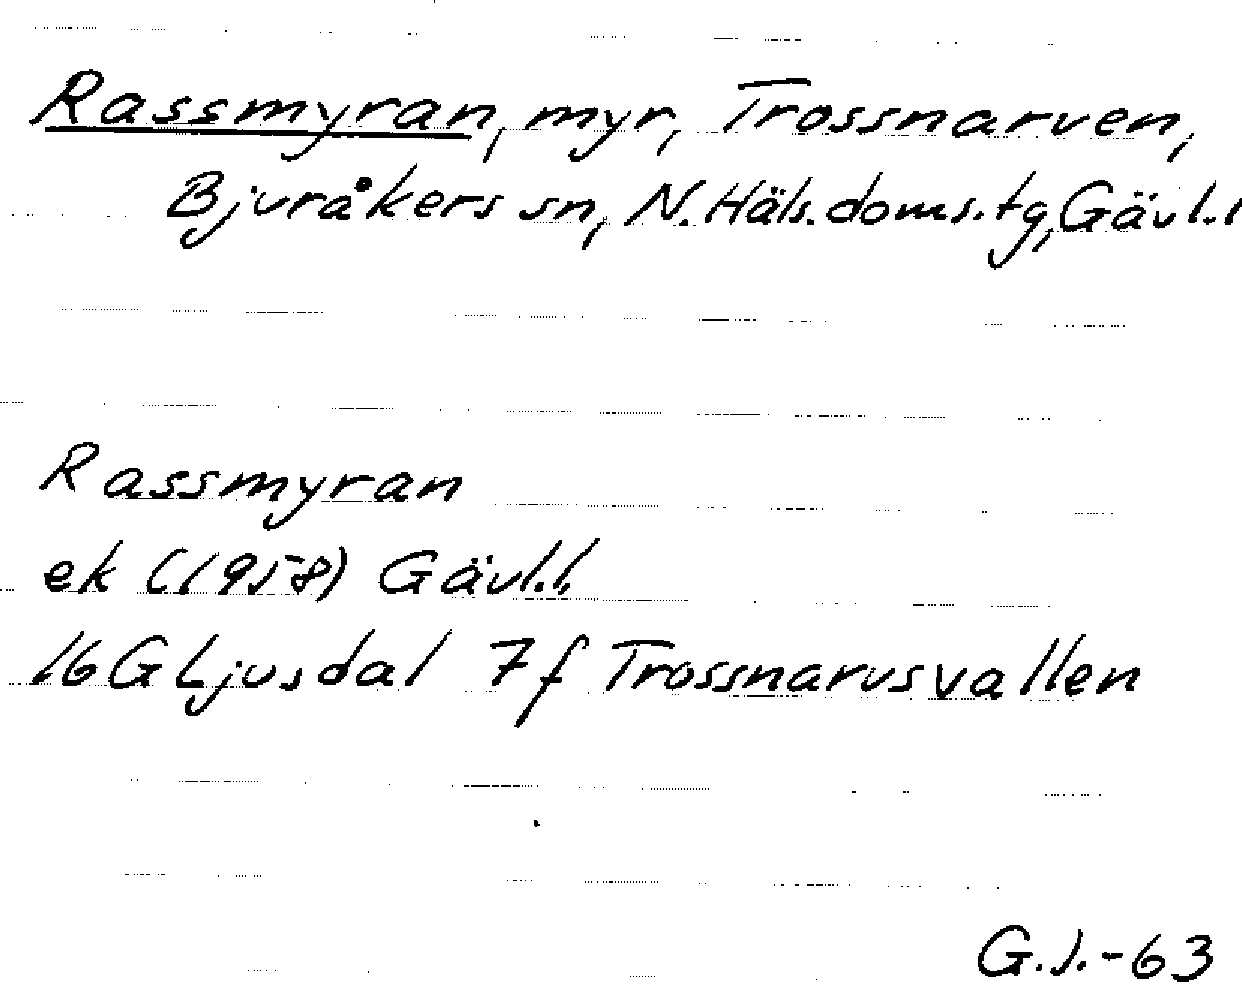 Rassmyran, myr, Trossnarven,
Bjuråkers sn, N. Häls. doms. tg, Gävl. l
Rassmyran
ek (1958) Gävl. l.
16 G Ljusdal 7 f Trossnarvsvallen
G.J.-63